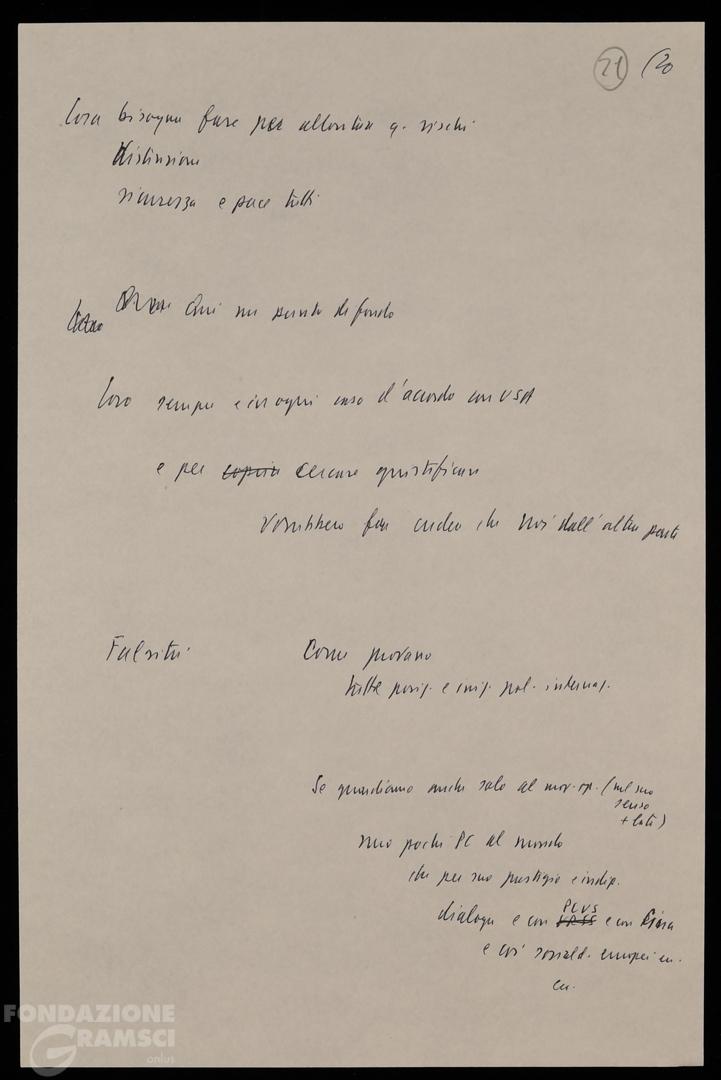 21 (20
Cosa bisogna fare per allontan q. rischi
distensione
sicurezza e pace tutti
Qui un punto di fondo
Loro sempre e in ogni caso d'accordo con USA
e per cercare giustificare
vorrebbero far creder che noi dall'altra parte
Falsità Come provano
tutte posiz. e iniz. pol. internaz.
Se guardiamo anche solo al mov. op. (nel suo
senso
+ lato)
sono pochi PC al mondo
che per suo prestigio e indip.
PCUS
dialoga e con e con Cina
e con sociald. europei ecc.
ecc.
FONDAZIONE
GRAMSCI
onlus